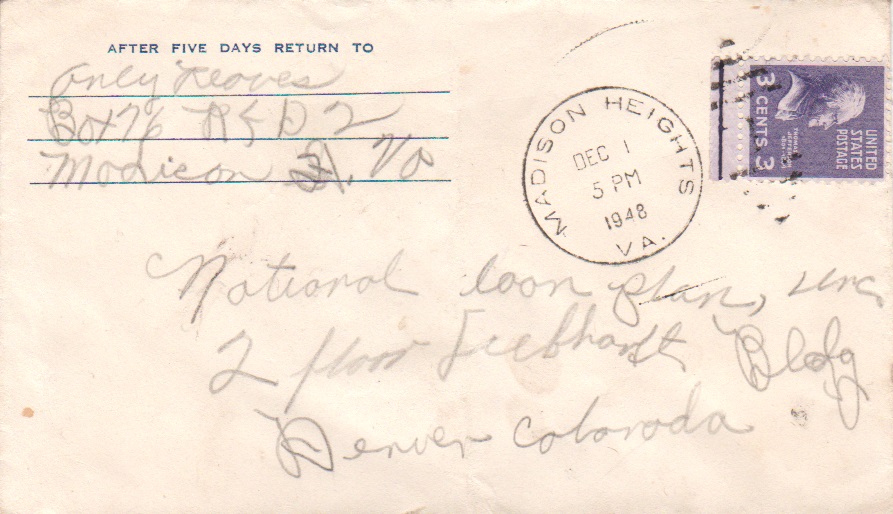 AFTER FIVE DAYS RETURN TO
Only Reaves
Box 76 R F D 2
Madison H. Va
MADISON HEIGHTS
DEC 1
5 PM
1948
VA.
UNITED
STATES
POSTAGE
3 CENTS 3
National loan plan, Inc,
2 floor Bldg
Denver Colorado